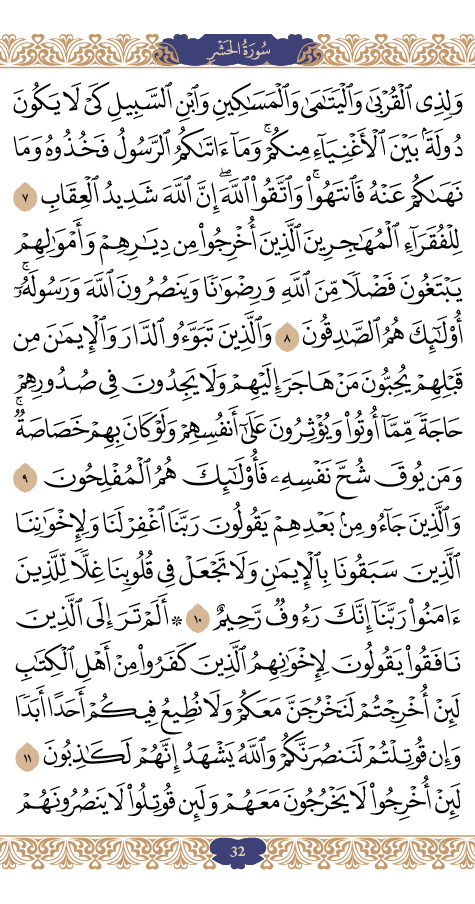 سُورَةُ الحَشْرِ
وَلِذِى ٱلْقُرْبَىٰ وَٱلْيَتَـٰمَىٰ وَٱلْمَسَـٰكِينِ وَٱبْنِ ٱلسَّبِيلِ كَىْ لَا يَكُونَ
دُولَةًۢ بَيْنَ ٱلْأَغْنِيَآءِ مِنكُمْ ۚ وَمَآ ءَاتَىٰكُمُ ٱلرَّسُولُ فَخُذُوهُ وَمَا
نَهَىٰكُمْ عَنْهُ فَٱنتَهُوا۟ ۚ وَٱتَّقُوا۟ ٱللَّهَ ۖ إِنَّ ٱللَّهَ شَدِيدُ ٱلْعِقَابِ ٧
لِلْفُقَرَآءِ ٱلْمُهَـٰجِرِينَ ٱلَّذِينَ أُخْرِجُوا۟ مِن دِيَـٰرِهِمْ وَأَمْوَٰلِهِمْ
يَبْتَغُونَ فَضْلًا مِّنَ ٱللَّهِ وَرِضْوَٰنًا وَيَنصُرُونَ ٱللَّهَ وَرَسُولَهُۥٓ ۚ
أُو۟لَـٰٓئِكَ هُمُ ٱلصَّـٰدِقُونَ ٨ وَٱلَّذِينَ تَبَوَّءُو ٱلدَّارَ وَٱلْإِيمَـٰنَ مِن
قَبْلِهِمْ يُحِبُّونَ مَنْ هَاجَرَ إِلَيْهِمْ وَلَا يَجِدُونَ فِى صُدُورِهِمْ
حَاجَةً مِّمَّآ أُوتُوا۟ وَيُؤْثِرُونَ عَلَىٰٓ أَنفُسِهِمْ وَلَوْ كَانَ بِهِمْ خَصَاصَةٌ ۚ
وَمَن يُوقَ شُحَّ نَفْسِهِۦ فَأُو۟لَـٰٓئِكَ هُمُ ٱلْمُفْلِحُونَ ٩
وَٱلَّذِينَ جَآءُو مِنۢ بَعْدِهِمْ يَقُولُونَ رَبَّنَا ٱغْفِرْ لَنَا وَلِإِخْوَٰنِنَا
ٱلَّذِينَ سَبَقُونَا بِٱلْإِيمَـٰنِ وَلَا تَجْعَلْ فِى قُلُوبِنَا غِلًّا لِّلَّذِينَ
ءَامَنُوا۟ رَبَّنَآ إِنَّكَ رَءُوفٌ رَّحِيمٌ ١٠ ۞ أَلَمْ تَرَ إِلَى ٱلَّذِينَ
نَافَقُوا۟ يَقُولُونَ لِإِخْوَٰنِهِمُ ٱلَّذِينَ كَفَرُوا۟ مِنْ أَهْلِ ٱلْكِتَـٰبِ
لَئِنْ أُخْرِجْتُمْ لَنَخْرُجَنَّ مَعَكُمْ وَلَا نُطِيعُ فِيكُمْ أَحَدًا أَبَدًا
وَإِن قُوتِلْتُمْ لَنَنصُرَنَّكُمْ وَٱللَّهُ يَشْهَدُ إِنَّهُمْ لَكَـٰذِبُونَ ١١
لَئِنْ أُخْرِجُوا۟ لَا يَخْرُجُونَ مَعَهُمْ وَلَئِن قُوتِلُوا۟ لَا يَنصُرُونَهُمْ
32